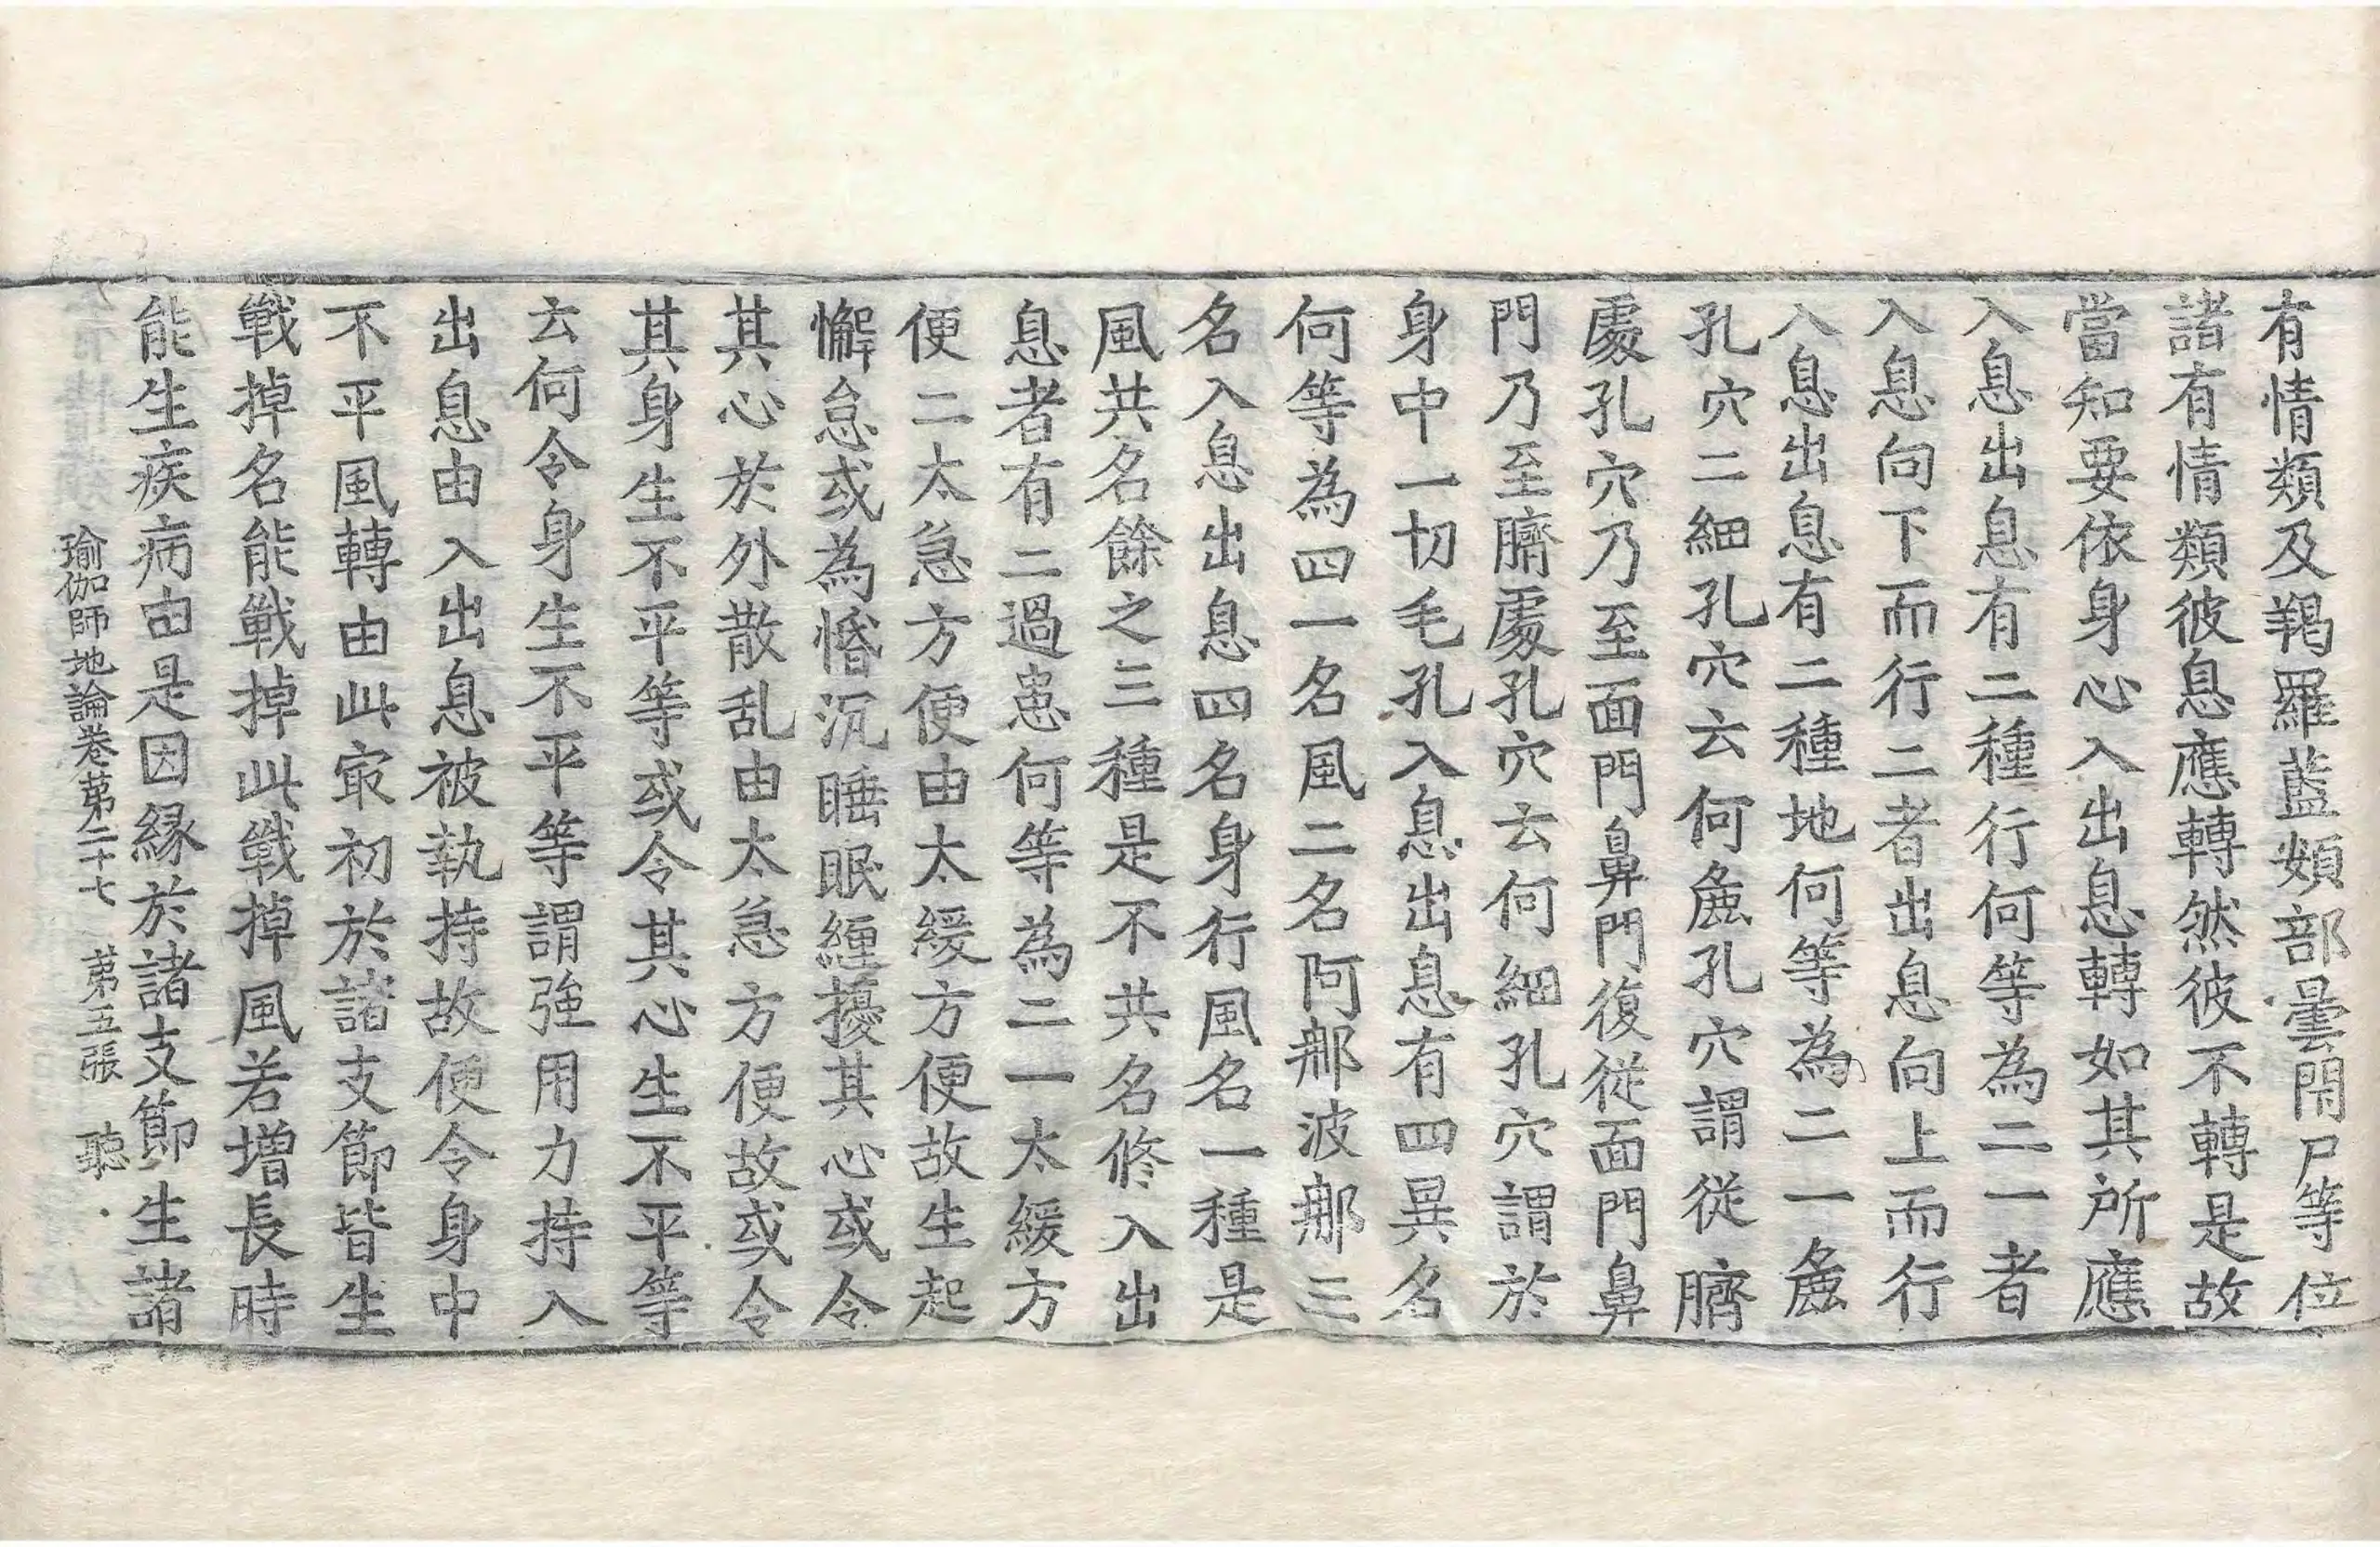 有情類及羯羅藍頞部曇閇尸等位
諸有情類彼息應轉然彼不轉是故
當知要依身心入出息轉如其所應
入息出息有二種行何等為二一者
入息向下而行二者出息向上而行
入息出息有二種地何等為二一麁
孔穴二細孔穴云何麁孔穴謂從臍
處孔穴乃至面門鼻門復從面門鼻
門乃至臍處孔穴云何細孔穴謂於
身中一切毛孔入息出息有四異名
何等為四一名風二名阿那波那三
名入息出息四名身行風名一種是
風共名餘之三種是不共名修入出
息者有二過患何等為二一太緩方
便二太急方便由太緩方便故生起
懈怠或為惛沉睡眠纏擾其心或令
其心於外散乱由太急方便故或令
其身生不平等或令其心生不平等
云何令身生不平等謂強用力持入
出息由入出息被執持故便令身中
不平風轉由此㝡初於諸支節皆生
戰掉名能戰掉此戰掉風若增長時
能生疾病由是因緣於諸支節生諸
瑜伽師地論卷第二十七 第五張 聽